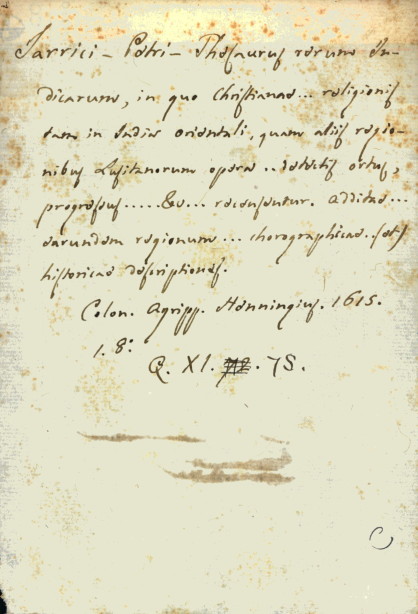 Jarrici - Petri - Thesaurus rerum In-
dicarum, in quo Christianae... religionis
tam in India orientali, quam aliis regio-
nibus Lusitanorum opera .. detectis ortus,
progressus ..... &c... recensentur. Additae...
earundem regionum ... chorographicae .. (et)
historicae descriptiones.
Colon. Agripp. Henningius. 1615.
1. 8°.
Q. XI. . 75.